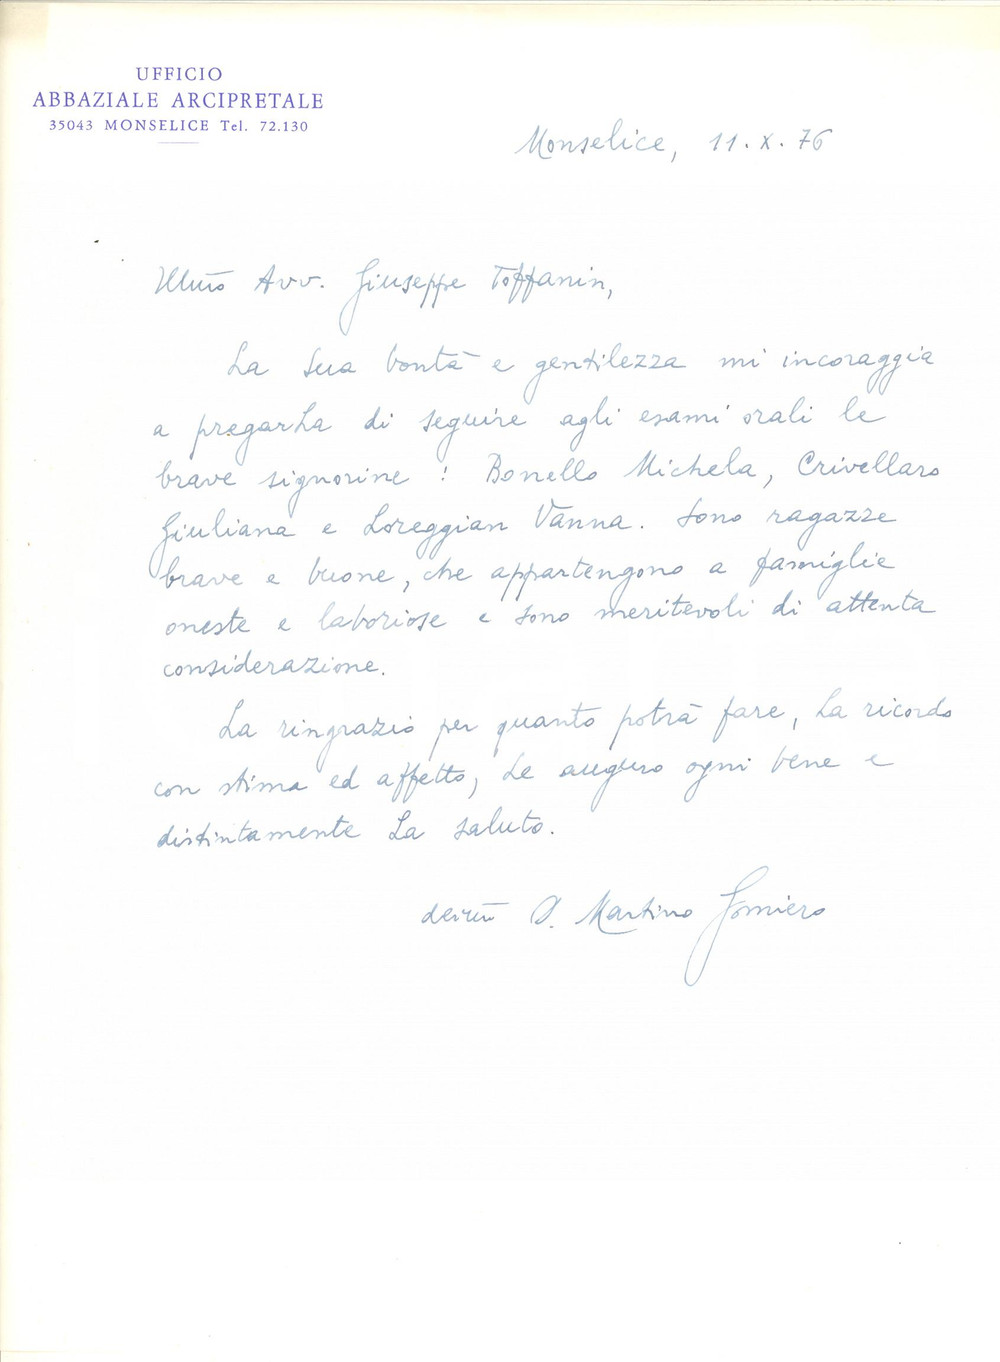 UFFICIO
ABBAZIALE ARCIPRETALE
35043 MONSELICE Tel. 72.130
Monselice, 11.X.76
Illmo Avv. Giuseppe Toffanin,
La Sua bontà e gentilezza mi incoraggia
a pregarLa di seguire agli esami orali le
brave signorine: Bonello Michela, Crivellaro
Giuliana e Loreggian Vanna. Sono ragazze
brave e buone, che appartengono a famiglie
oneste e laboriose e sono meritevoli di attenta
considerazione.
La ringrazio per quanto potrà fare, La ricordo
con stima ed affetto, Le auguro ogni bene e
distintamente La saluto.
D. Martino Gomiero